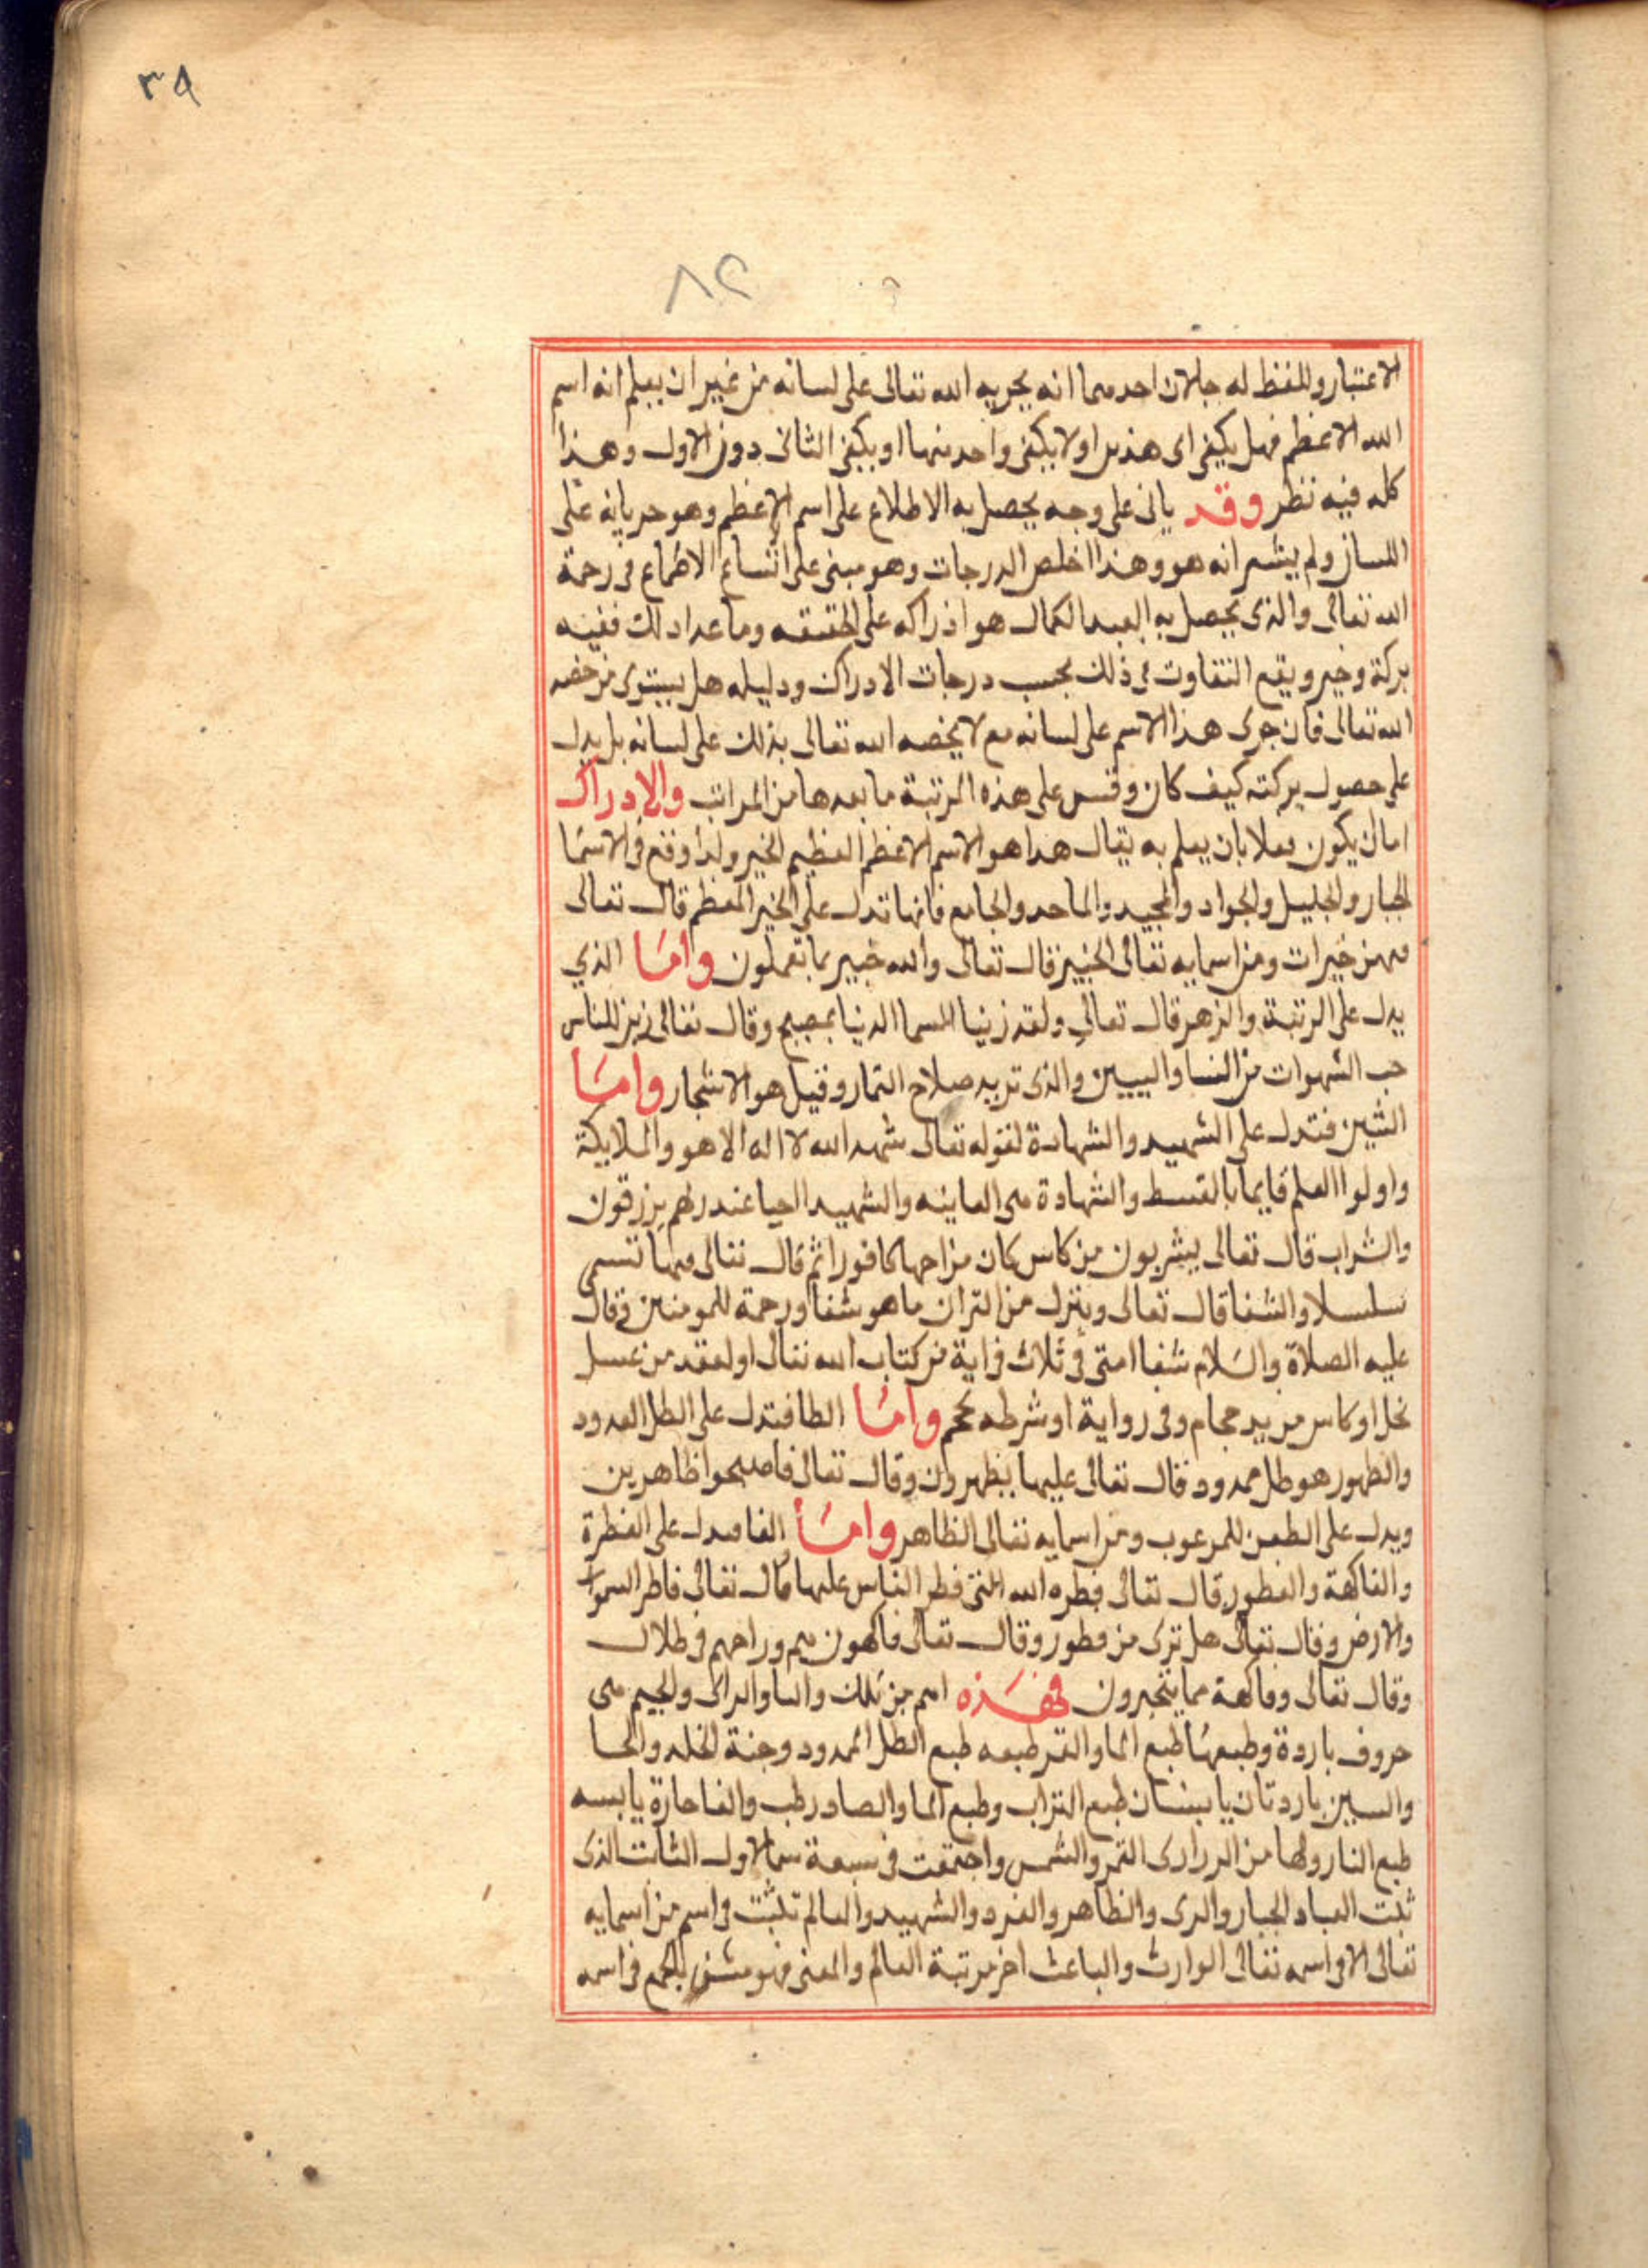 ٣٩
٨٢
الاعتبار وللفظ له حالان احدهما انه يجريه الله تعالى على لسانه من غير ان يعلم انه اسم
الله الاعظم فهل يكفي اى هذين اولا يكفى واحد منهما او يكفى الثانى دون الاول وهذا
كله فيه نظر وقد ياتى على وجه يحصل به الاطلاع على اسم الاعظم وهو جريانه على
اللسان ولم يشعر انه هو وهذا اخلص الدرجات وهو مبنى على اتساع الاطماع فى رحمة
الله تعالى والذى يحصل به العبد الكمال هو ادراكه على الحقيقه وما عدا ذلك ففيه
بركة وخير ويقع التفاوت فى ذلك بحسب درجات الادراك ودليله هل يستوى من خصه
الله تعالى فان جرى هذا الاسم على لسانه مع لا يخصه الله تعالى بذلك على لسانه بل يدل
على حصول بركته كيف كان وقس على هذه المرتبة ما بعدها من المراتب والادراك
اما ان يكون فعلا بان يعلم به يقال هذا هو الاسم الاعظم العظيم الخير ولذا وقع فى الاسما
الجبار والجليل والجواد والمجيد والماجد والجامع فانها تدل على الخير المعظم قال تعالى
فيهن خيرات ومن اسمايه تعالى الخبير قال تعالى والله خبير بما تعملون واما الذي
يدل على الرتبة والزهر قال تعالى ولقد زينا السما الدنيا بمصبيح وقال تعالى زين للناس
حب الشهوات من النسا والبنين والذى تريد صلاح الثمار وقيل هو الاشجار واما
الشين فتدل على الشهيد والشهادة لقوله تعالى شهد الله لا اله الا هو والملايكة
واولوا العلم قايما بالقسط والشهادة هى المعاينه والشهيد احيا عند ربهم يرزقون
والشراب قال تعالى يشربون من كاس كان مزاجها كافورا ثم قال تعالى فيها تسمى
سلسبيلا والشفا قال تعالى وينزل من القران ما هو شفا ورحمة للمومنين وقال
عليه الصلاة والسلام شفا امتى فى ثلاث فى اية من كتاب الله تعالى او لعقه من عسل
نحل او كاس من يد حجام وفى رواية او شرطه محجم واما الظا فتدل على الظل الممدود
والظهور هو ظل ممدود قال تعالى عليها يظهرون وقال تعالى فاصبحوا ظاهرين
ويدل على الطعن للمرعوب ومن اسمايه تعالى الظاهر واما الفا فيدل على الفطرة
والفاكهة والفطور قال تعالى فطره الله التى فطر الناس عليها قال تعالى فاطر السموات
والارض وقال تعالى هل ترى من فطور وقال تعالى فاكهون هم وازواجهم فى ظلال
وقال تعالى وفاكهة مما يتخيرون فهذه اسم من تلك والبا والراى والجيم هى
حروف باردة وطبعها طبع الما والقمر طبعه طبع الظل الممدود وجنة الخلد والحا
والسين باردتان يابستان طبع التراب وطبع الما والصاد رطب والفا حارة يابسه
طبع النار ولها من الدرارى القمر والشمس واجتمعت فى سبعة سما الاول الثابت الذى
ثبت العباد الجبار والزى والظاهر والفرد والشهيد والعالم تثبت فى اسم من اسمايه
تعالى الا فى اسمه تعالى الوارث والباعث اخر مرتبة العالم والمعنى فهو مشفى للجمع فى اسمه